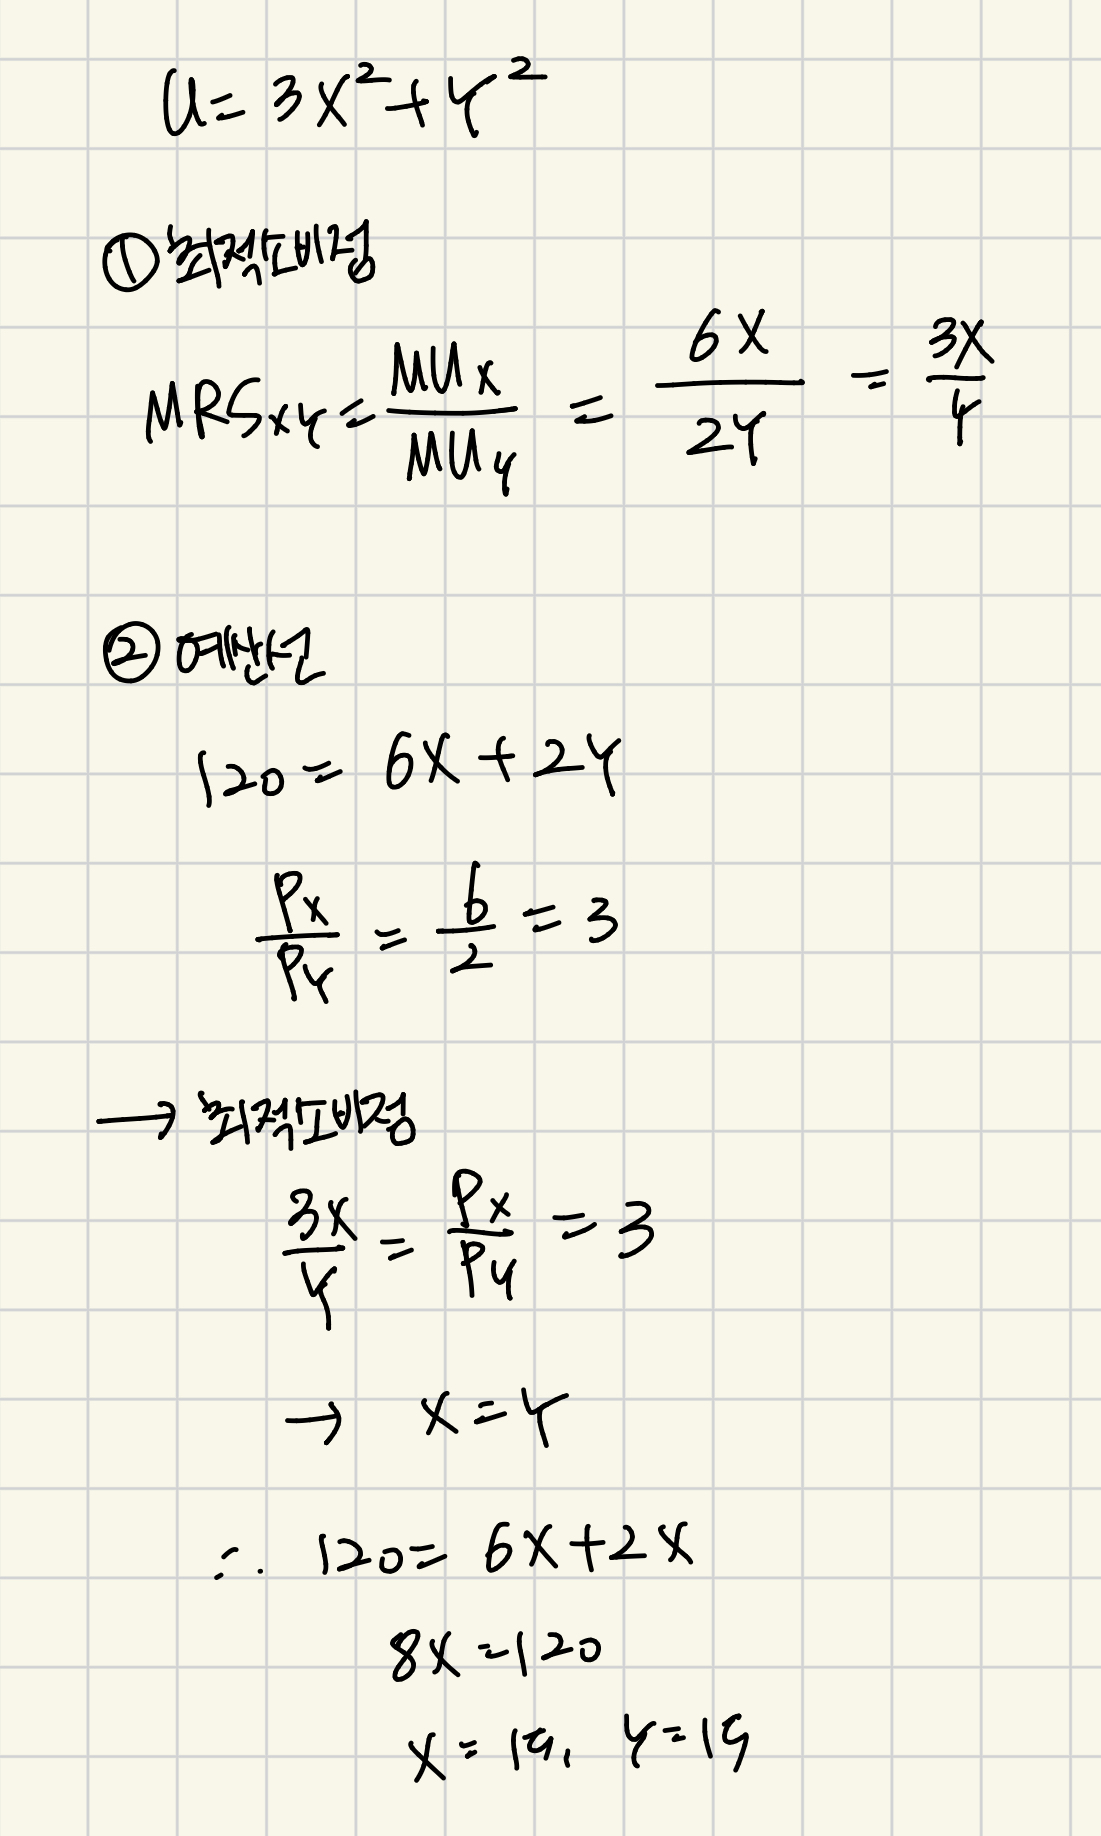 U = 3X² + Y²
① 최적소비점
MRSxy = MUx / MUy = 6X / 2Y = 3X / Y
② 예산선
120 = 6X + 2Y
Px / Py = 6 / 2 = 3
→ 최적소비점
3X / Y = Px / Py = 3
→ X = Y
∴ 120 = 6X + 2X
8X = 120
X = 15, Y = 15